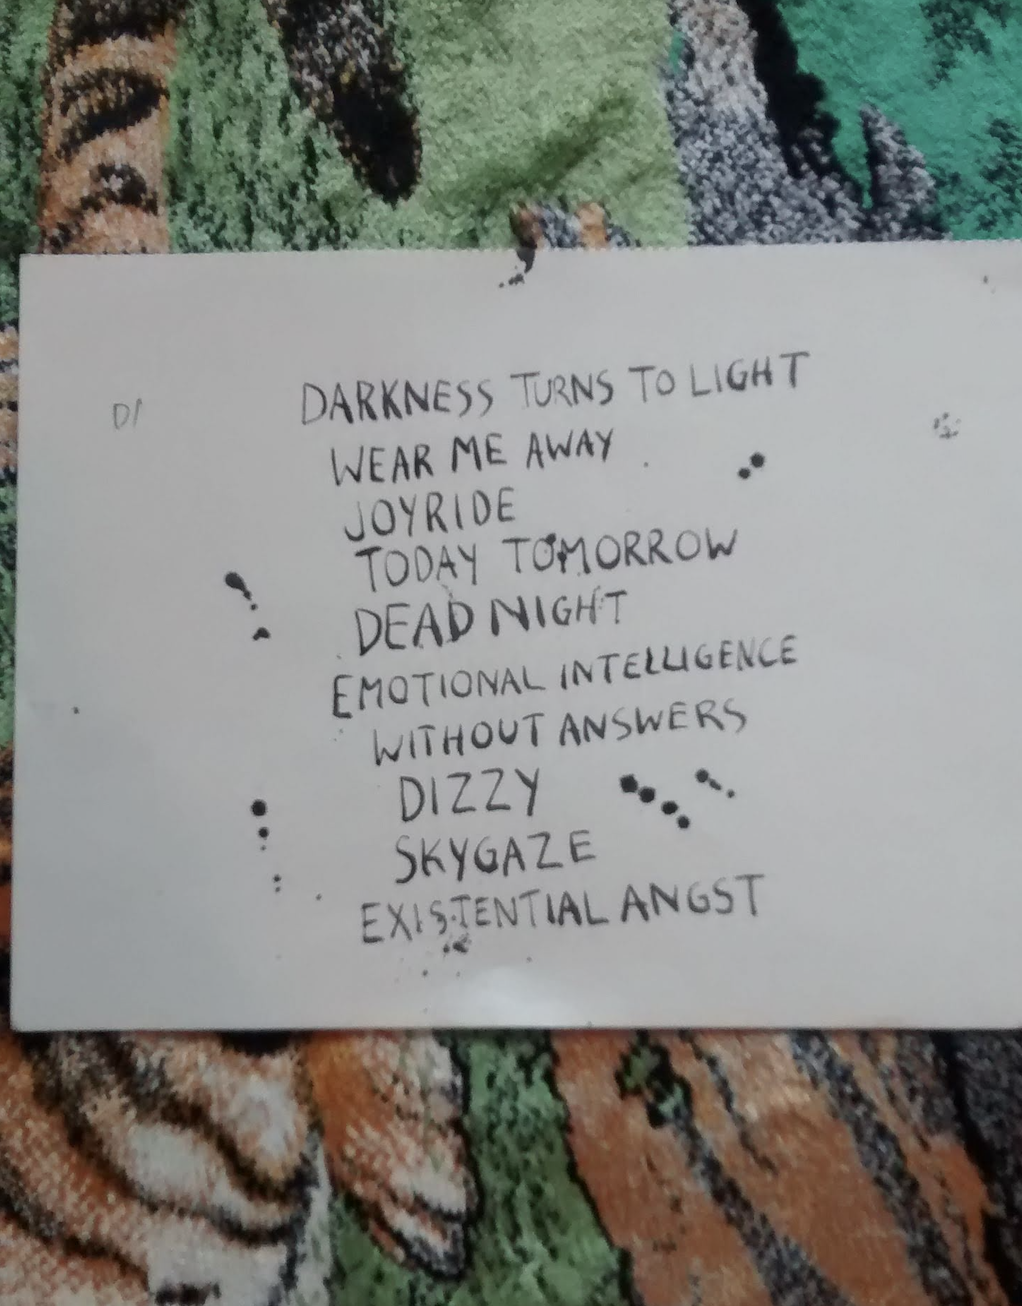 D/
DARKNESS TURNS TO LIGHT
WEAR ME AWAY
JOYRIDE
TODAY TOMORROW
DEAD NIGHT
EMOTIONAL INTELLIGENCE
WITHOUT ANSWERS
DIZZY
SKYGAZE
EXISTENTIAL ANGST